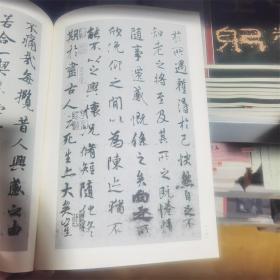 於所遇蹔得於己快然自足不
知老之將至及其所之既惓情
隨事遷感慨係之矣向之所
欣俛仰之閒以為陳迹猶不
能不以之興懷況脩短隨化終
期於盡古人云死生亦大矣豈
不痛哉每攬昔人興感之由
若合一契